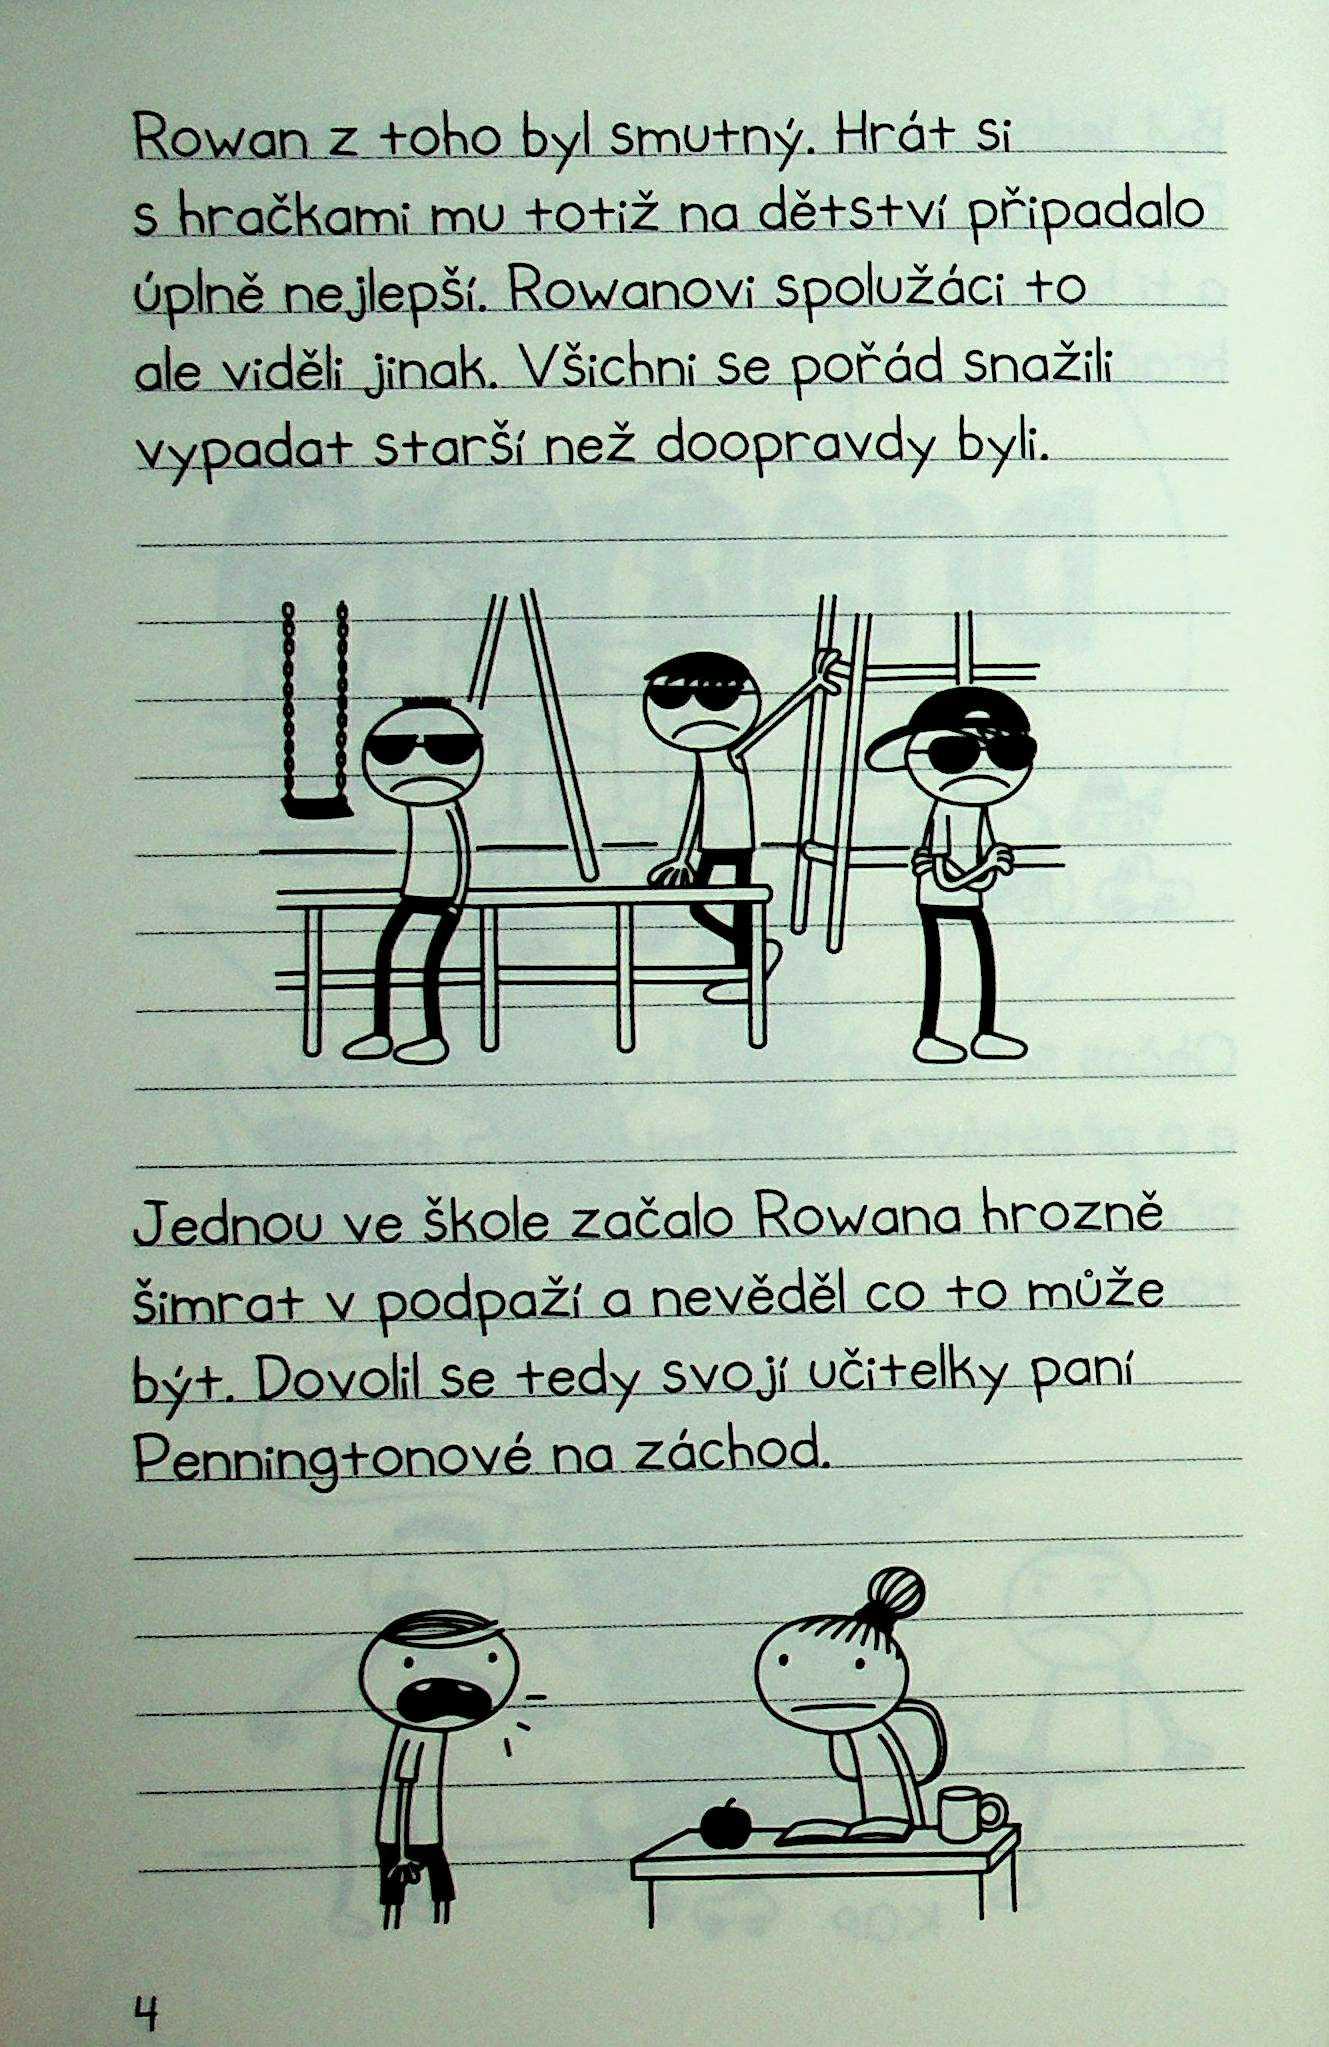 Rowan z toho byl smutný. Hrát si
s hračkami mu totiž na dětství připadalo
úplně nejlepší. Rowanovi spolužáci to
ale viděli jinak. Všichni se pořád snažili
vypadat starší než doopravdy byli.
Jednou ve škole začalo Rowana hrozně
šimrat v podpaží a nevěděl co to může
být. Dovolil se tedy svojí učitelky paní
Penningtonové na záchod.
4